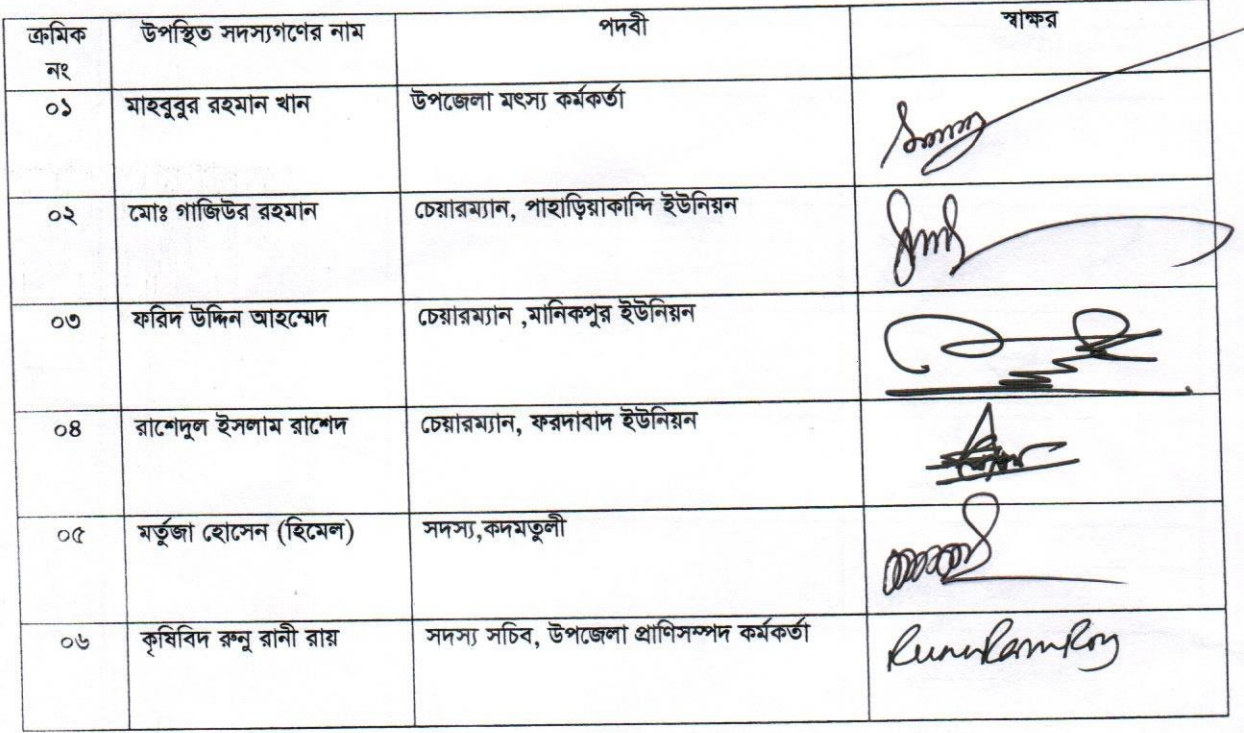 ক্রমিক নং উপস্থিত সদস্যগণের নাম পদবী স্বাক্ষর
০১ মাহবুবুর রহমান খান উপজেলা মৎস্য কর্মকর্তা
০২ মোঃ গাজিউর রহমান চেয়ারম্যান, পাহাড়িয়াকান্দি ইউনিয়ন
০৩ ফরিদ উদ্দিন আহম্মেদ চেয়ারম্যান ,মানিকপুর ইউনিয়ন
০৪ রাশেদুল ইসলাম রাশেদ চেয়ারম্যান, ফরদাবাদ ইউনিয়ন
০৫ মর্তুজা হোসেন (হিমেল) সদস্য,কদমতুলী
০৬ কৃষিবিদ রুনু রানী রায় সদস্য সচিব, উপজেলা প্রাণিসম্পদ কর্মকর্তা Runu Rani Roy